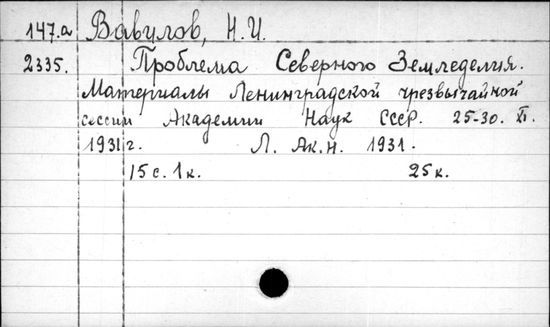 147.а Вавилов, Н.И.
2335. Проблема Северного Земледелия.
Материалы Ленинградской чрезвычайной
сессии Академии Наук СССР. 25-30. XI.
1931 г. Л. Ак.Н. 1931.
15 с. 1 к. 25 к.